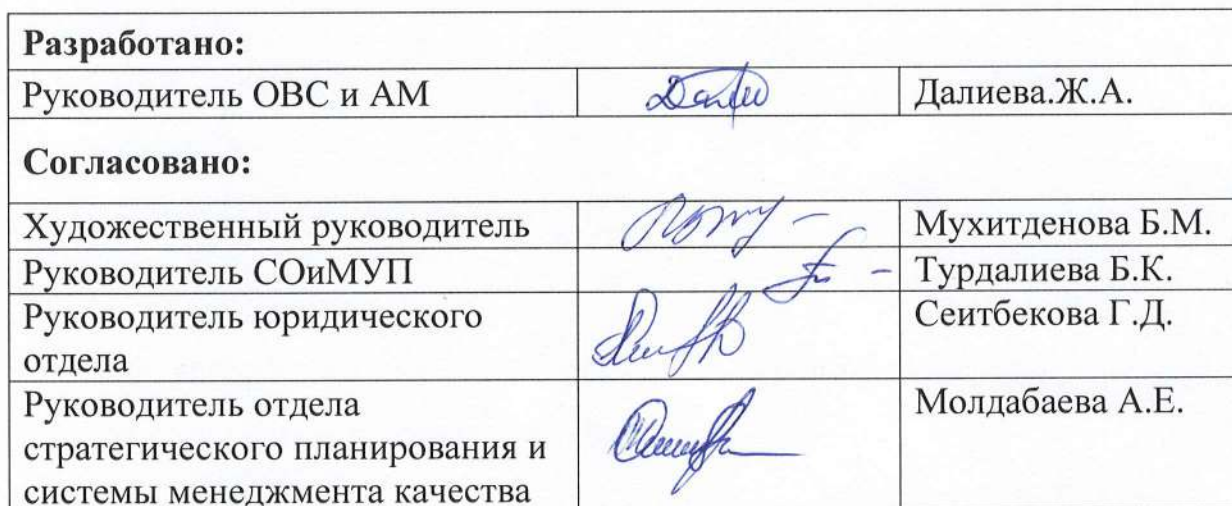 Разработано:
Руководитель ОВС и АМ Далиева.Ж.А.
Согласовано:
Художественный руководитель Мухитденова Б.М.
Руководитель СОиМУП Турдалиева Б.К.
Руководитель юридического Сеитбекова Г.Д.
отдела
Руководитель отдела Молдабаева А.Е.
стратегического планирования и
системы менеджмента качества